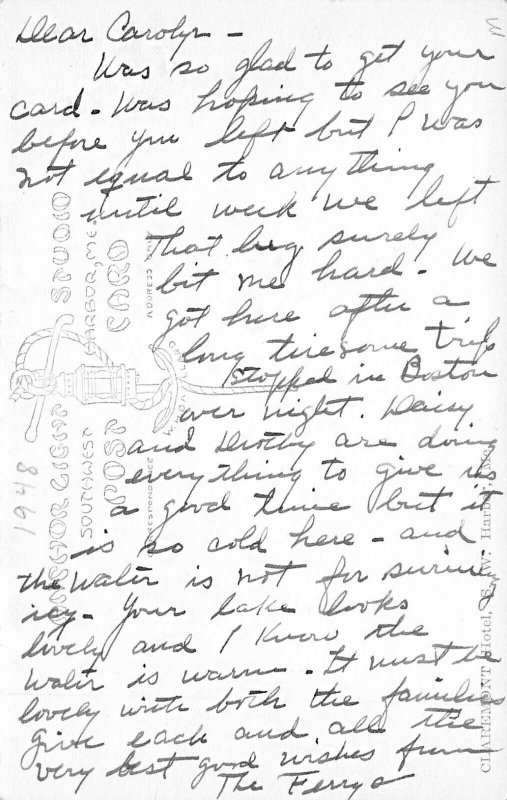 Dear Carolyn -
Was so glad to get your
card - Was hoping to see you
before you left but I was
not equal to anything
until week we left
That bug surely
bit me hard - We
got here after a
long tiresome trip
Stopped in Boston
over night. Daisy
and Dorothy are doing
everything to give us
a good time but it
is so cold here - and
the water is not for swimming
icy - Your lake looks
lovely and I know the
water is warm. It must be
lovely with both the families
give each and all the
very best good wishes from
The Ferrys
M
1948
ANCHORLIGHT STUDIO
SOUTHWEST HARBOR, ME.
POST CARD
CORRESPONDENCE
ADDRESS ONLY
CLAREMONT Hotel, S. W. Harbor, Me.